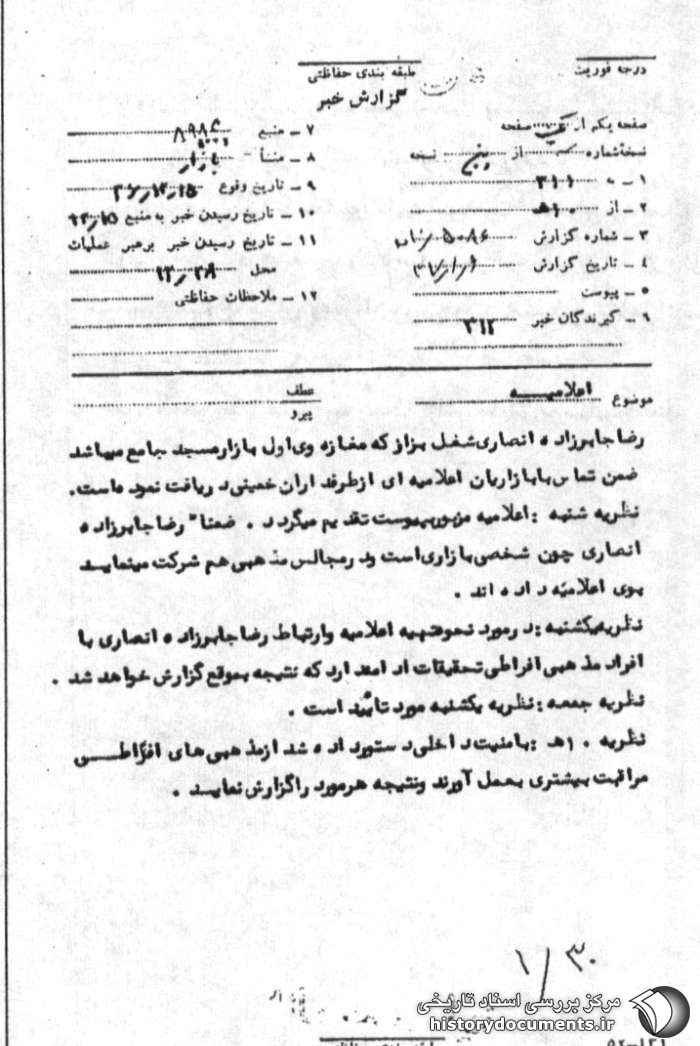 درجه فوریت
طبقه بندی حفاظتی
گزارش خبر
صفحه یکم از یک صفحه
نسخه شماره از پنج نسخه
۱ ـ به ۳۱۱
۲ ـ از ۱۰ هـ
۳ ـ شماره گزارش ۵۰۸۶
۴ ـ تاریخ گزارش
۵ ـ پیوست
۶ ـ گیرندگان خبر ۳۱۲
۷ ـ منبع ۸۹۸۴
۸ ـ منشأ بازار
۹ ـ تاریخ وقوع ۳۶٫۱۲٫۱۵
۱۰ ـ تاریخ رسیدن خبر به منبع ۱۲٫۱۵
۱۱ ـ تاریخ رسیدن خبر برهبر عملیات
محل ۱۲٫۲۸
۱۲ ـ ملاحظات حفاظتی
موضوع اعلامیـــه
عطف
پیرو
رضا جابرزاده انصاری شغل بزاز که مغازه وی اول بازار مسجد جامع میباشد
ضمن تماس با بازاریان اعلامیه ای از طرفداران خمینی دریافت نموده است.
نظریه شنبه : اعلامیه مزبور بپیوست تقدیم میگردد . ضمناً رضا جابرزاده
انصاری چون شخصی بازاری است ودرمجالس مذهبی هم شرکت مینمایــد
بوی اعلامیّه داده اند .
نظریه یکشنبه : درمورد نحوه تهیه اعلامیه وارتباط رضا جابرزاده انصاری با
افراد مذهبی افراطی تحقیقات ادامه دارد که نتیجه بموقع گزارش خواهد شد .
نظریه جمعه : نظریه یکشنبه مورد تائید است .
نظریه ۱۰ هـ : بامنیت داخلی دستور داده شد ازمذهبی های افراطــی
مراقبت بیشتری بعمل آورند ونتیجه هرمورد راگزارش نمایــد .
۱/۳۰
مرکز بررسی اسناد تاریخی
historydocuments.ir
۵۲-۱۳۱